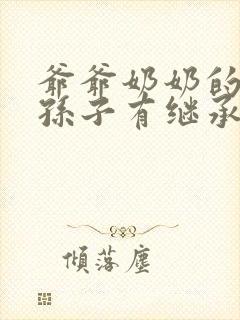 爺爺奶奶的
孫子有继承
傾落塵